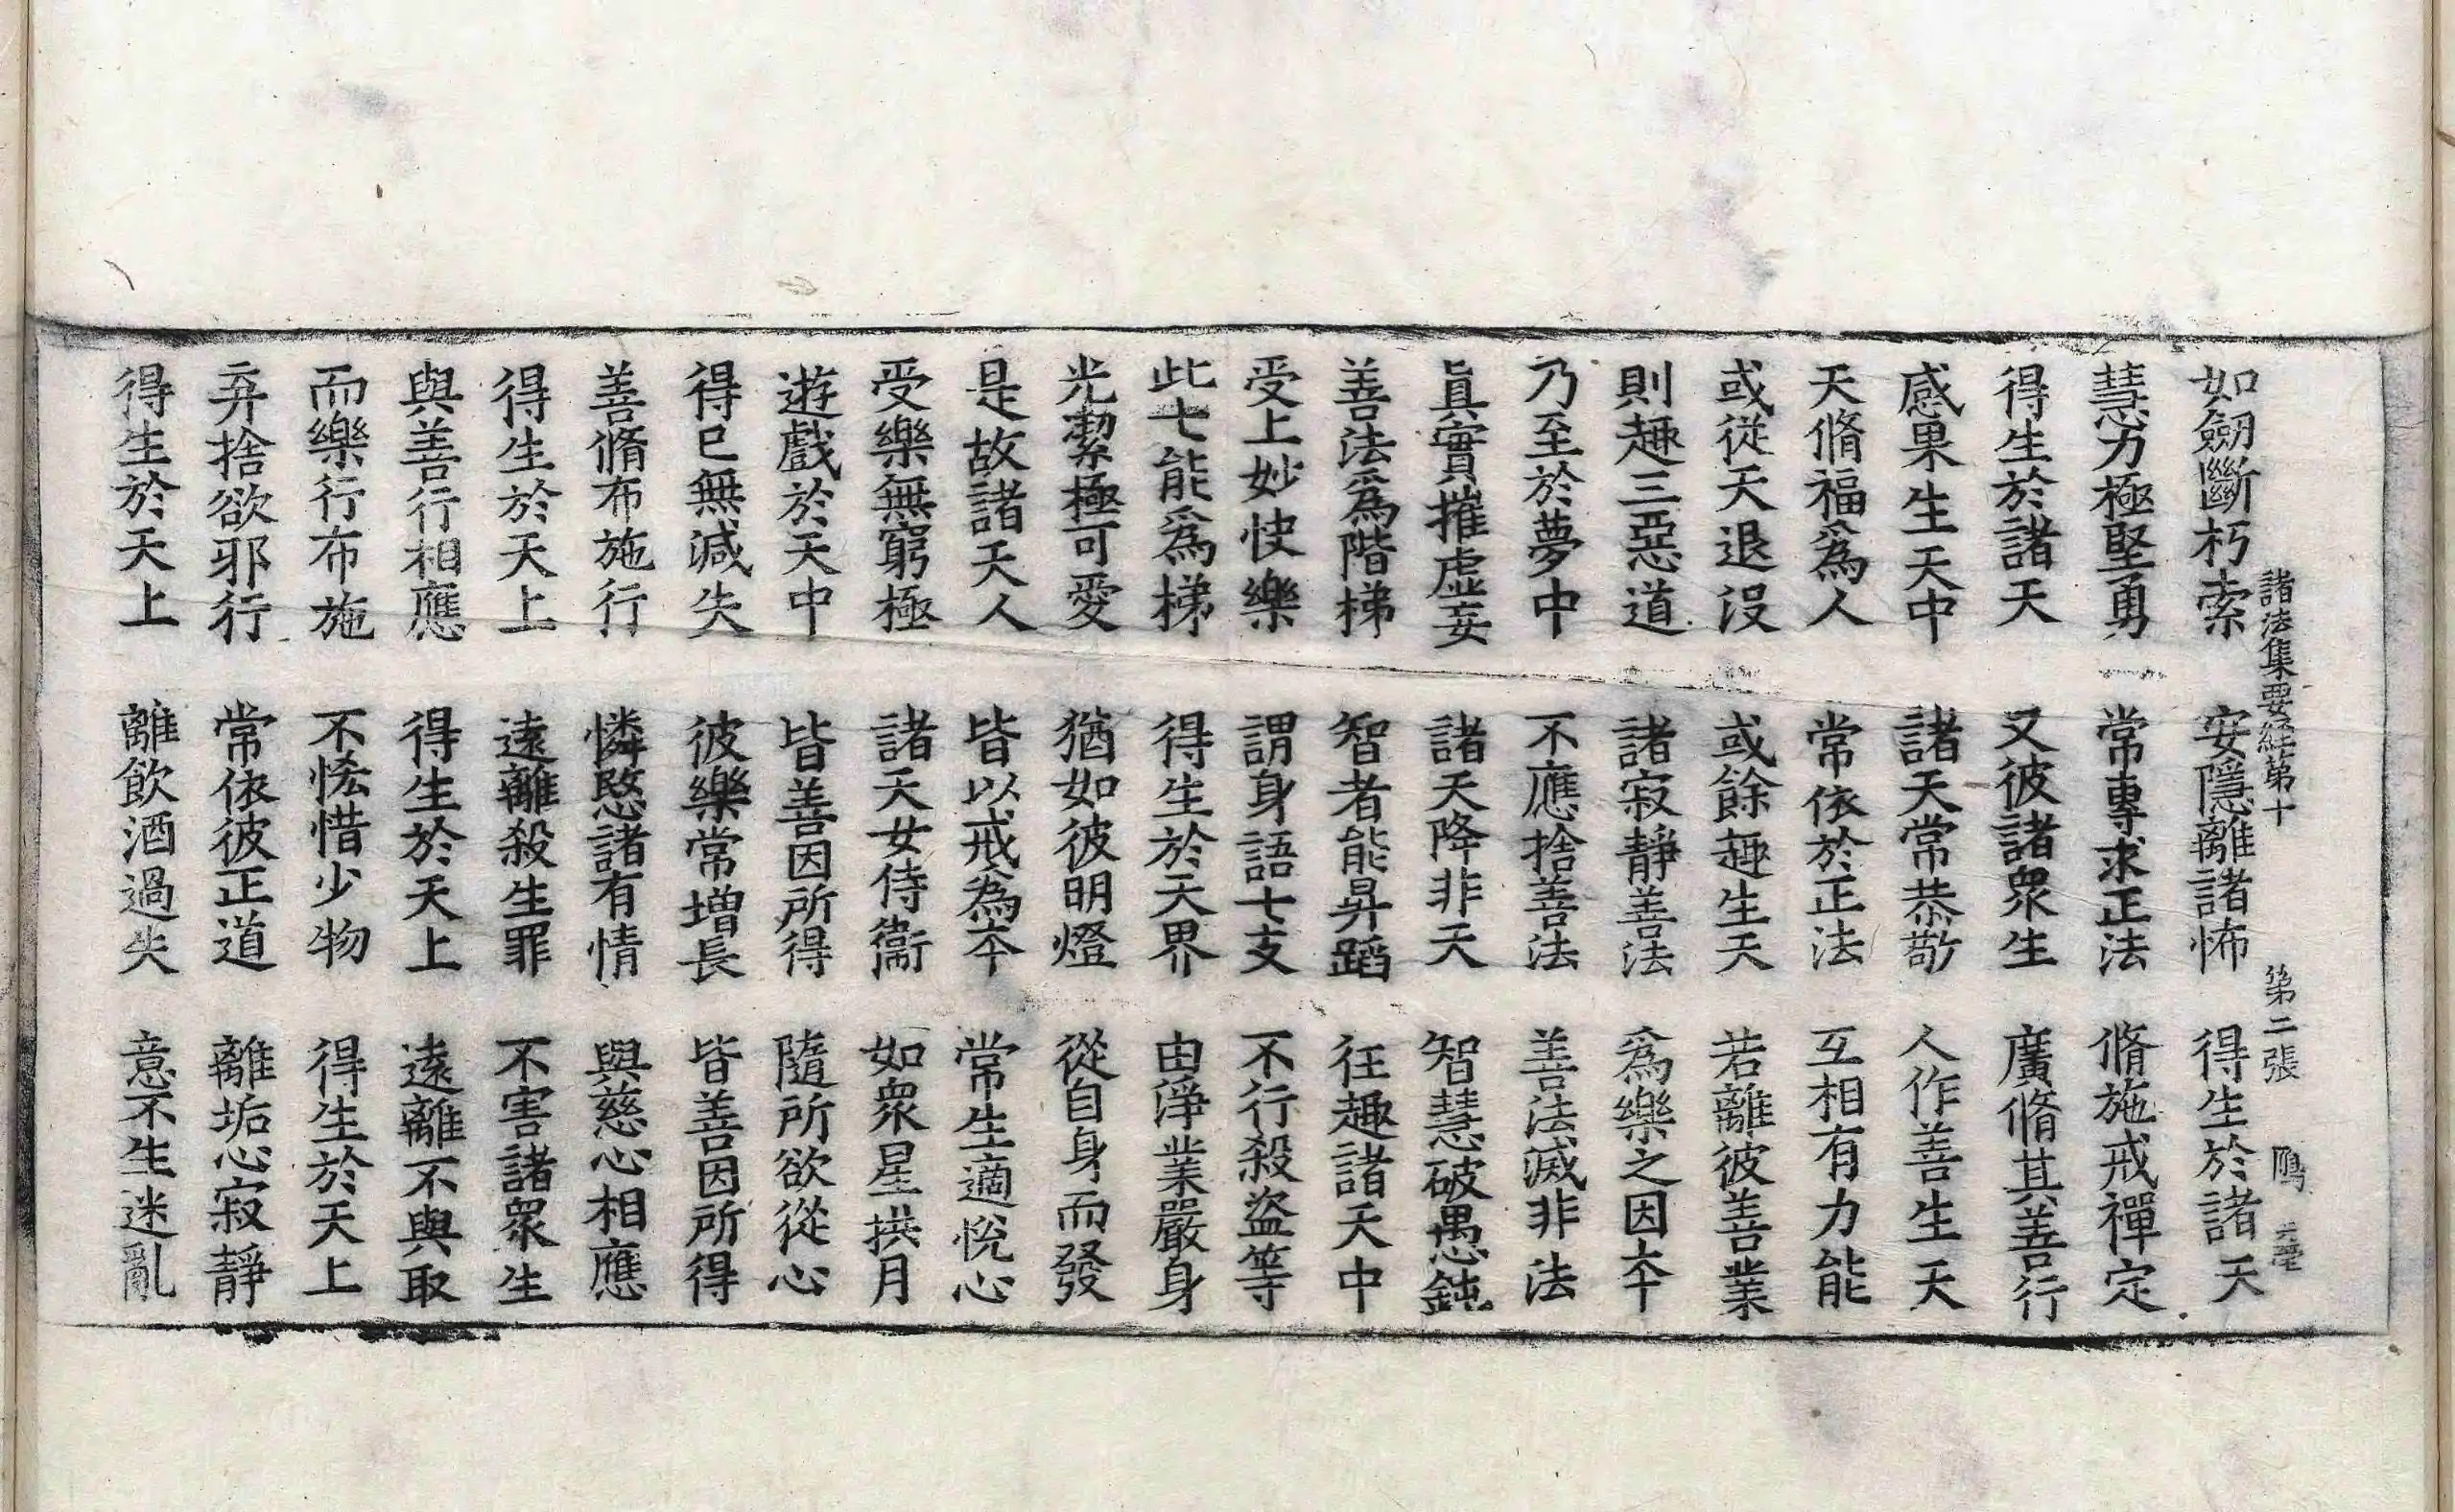 諸法集要経第十　第二張　鴈
如劒斷朽索　安隱離諸怖　得生於諸天
慧力極堅勇　常專求正法　脩施戒禪定
得生於諸天　又彼諸衆生　廣脩其善行
感果生天中　諸天常恭敬　人作善生天
天脩福爲人　常依於正法　互相有力能
或從天退沒　或餘趣生天　若離彼善業
則趣三惡道　諸寂靜善法　爲樂之因夲
乃至於夢中　不應捨善法　善法滅非法
眞實摧虛妄　諸天降非天　智慧破愚鈍
善法爲階梯　智者能昇蹈　往趣諸天中
受上妙快樂　謂身語七支　不行殺盜等
此七能爲梯　得生於天界　由淨業嚴身
光潔極可愛　猶如彼明燈　從自身而發
是故諸天人　皆以戒為夲　常生適悅心
受樂無窮極　諸天女侍衞　如衆星拱月
遊戲於天中　皆善因所得　隨所欲從心
得已無減失　彼樂常增長　皆善因所得
善脩布施行　憐愍諸有情　與慈心相應
得生於天上　遠離殺生罪　不害諸衆生
與善行相應　得生於天上　遠離不與取
而樂行布施　不恡惜少物　得生於天上
弃捨欲邪行　常依彼正道　離垢心寂靜
得生於天上　離飲酒過失　意不生迷亂